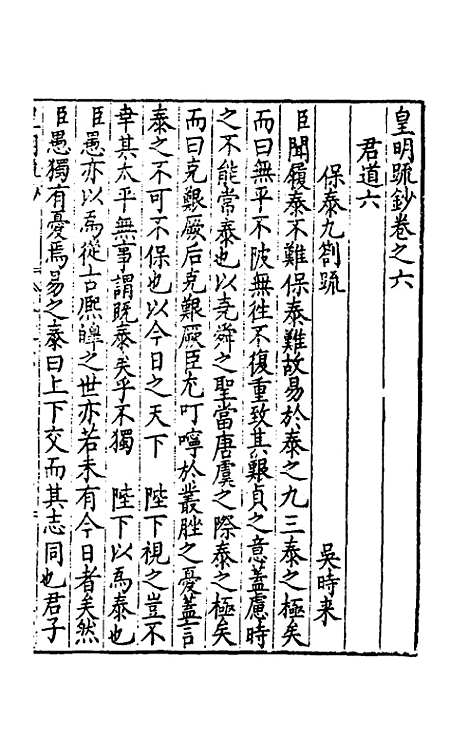 皇明疏鈔卷之六
君道六
保泰九劄疏 吳時来
臣聞履泰不難保泰難故易於泰之九三泰之極矣
而曰無平不陂無往不復重致其艱貞之意蓋慮時
之不能常泰也以堯舜之聖當唐虞之際泰之極矣
而曰克艱厥后克艱厥臣尤叮嚀於叢脞之憂蓋言
泰之不可不保也以今日之天下 陛下視之豈不
幸其太平無事謂既泰矣乎不獨 陛下以為泰也
臣愚亦以為從古熈皞之世亦若未有今日者矣然
臣愚獨有憂焉易之泰曰上下交而其志同也君子